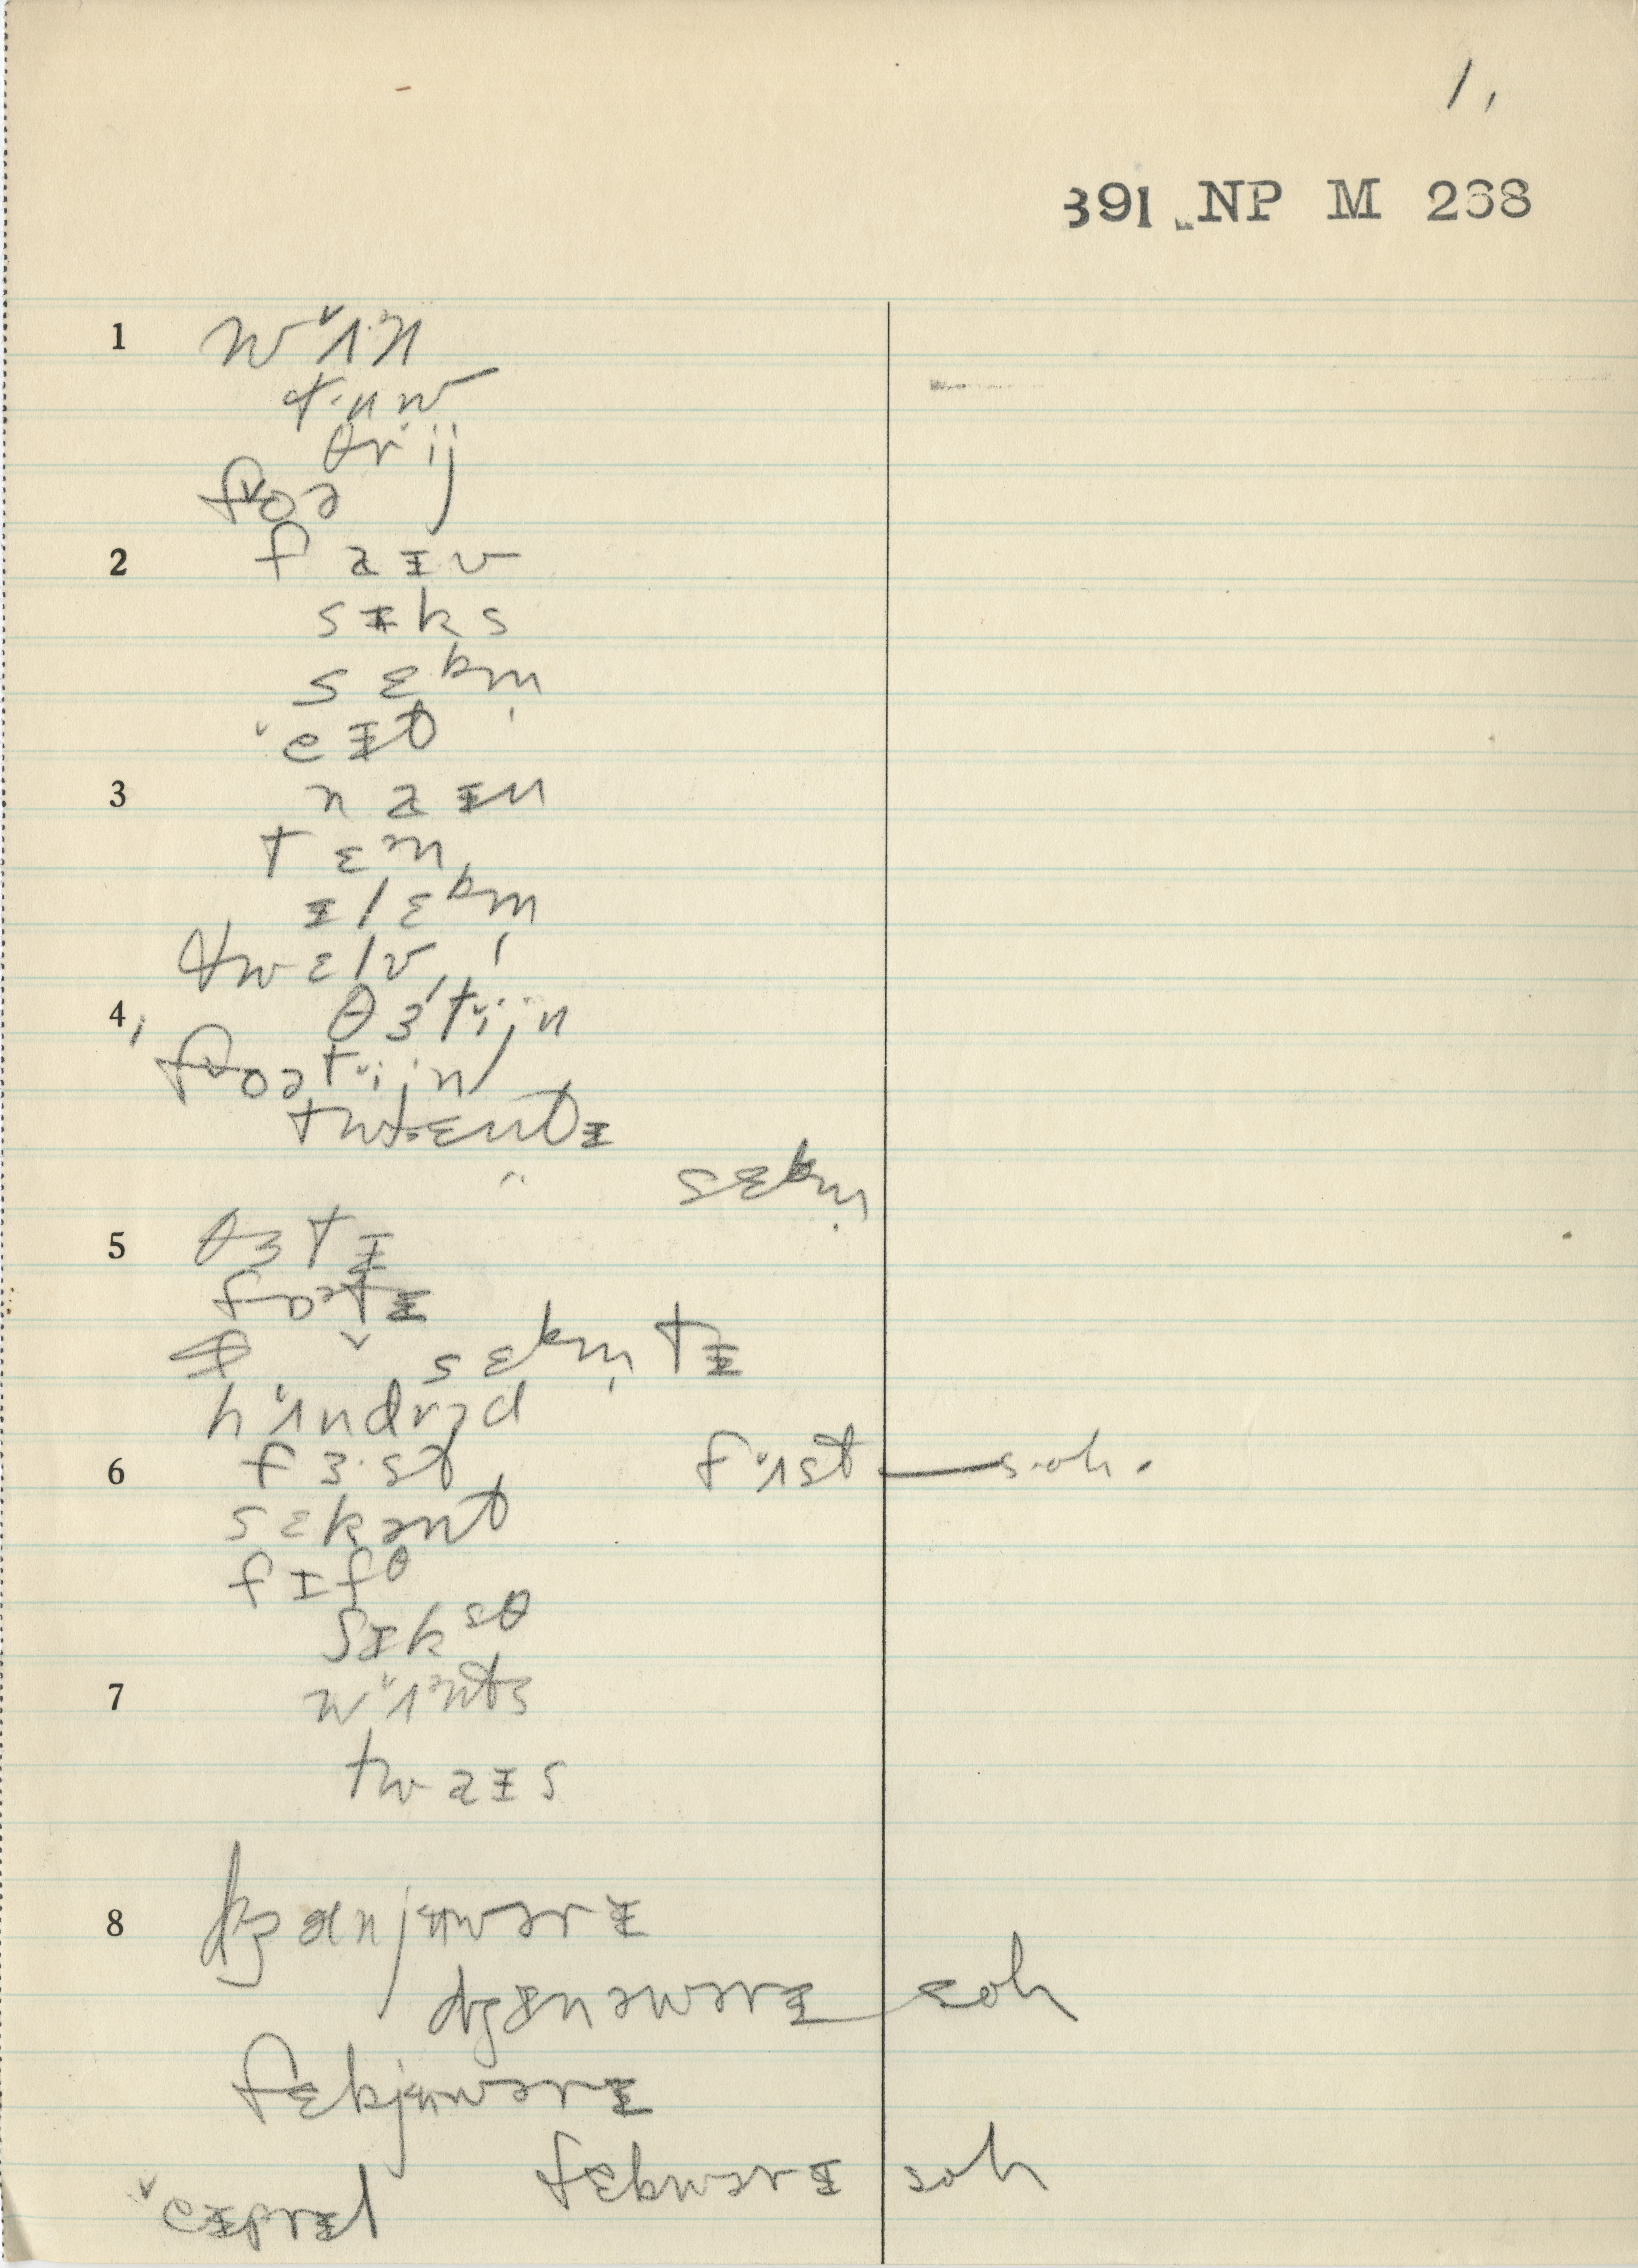 1,
391 NP M 268
1 wʌ̌ᵊn
tʉw
θrij
fɒ̌ə
2 faɪv
sɪks
sɛbm̩
ˇeɪt
3 naɪn
tɛᵊn
ɪlɛbm̩
twɛlv
4, θɜtijn
fɒətijn
twɛntɪ
" sɛbm̩
5 θɜtɪ
fɒətɪ
sɛbm̩tɪ
hʌ̌ndrəd
6 fɜ·st fʌ̌st — soh.
sɛkənt
fɪfθ
sɪksθ
7 wʌ̌ᵊnts
twaɪs
8 dʒænjʉwərɪ
dʒɛnəwərɪ soh
fɛbjʉwərɪ
fɛbwərɪ soh
ˇeɪprɪl